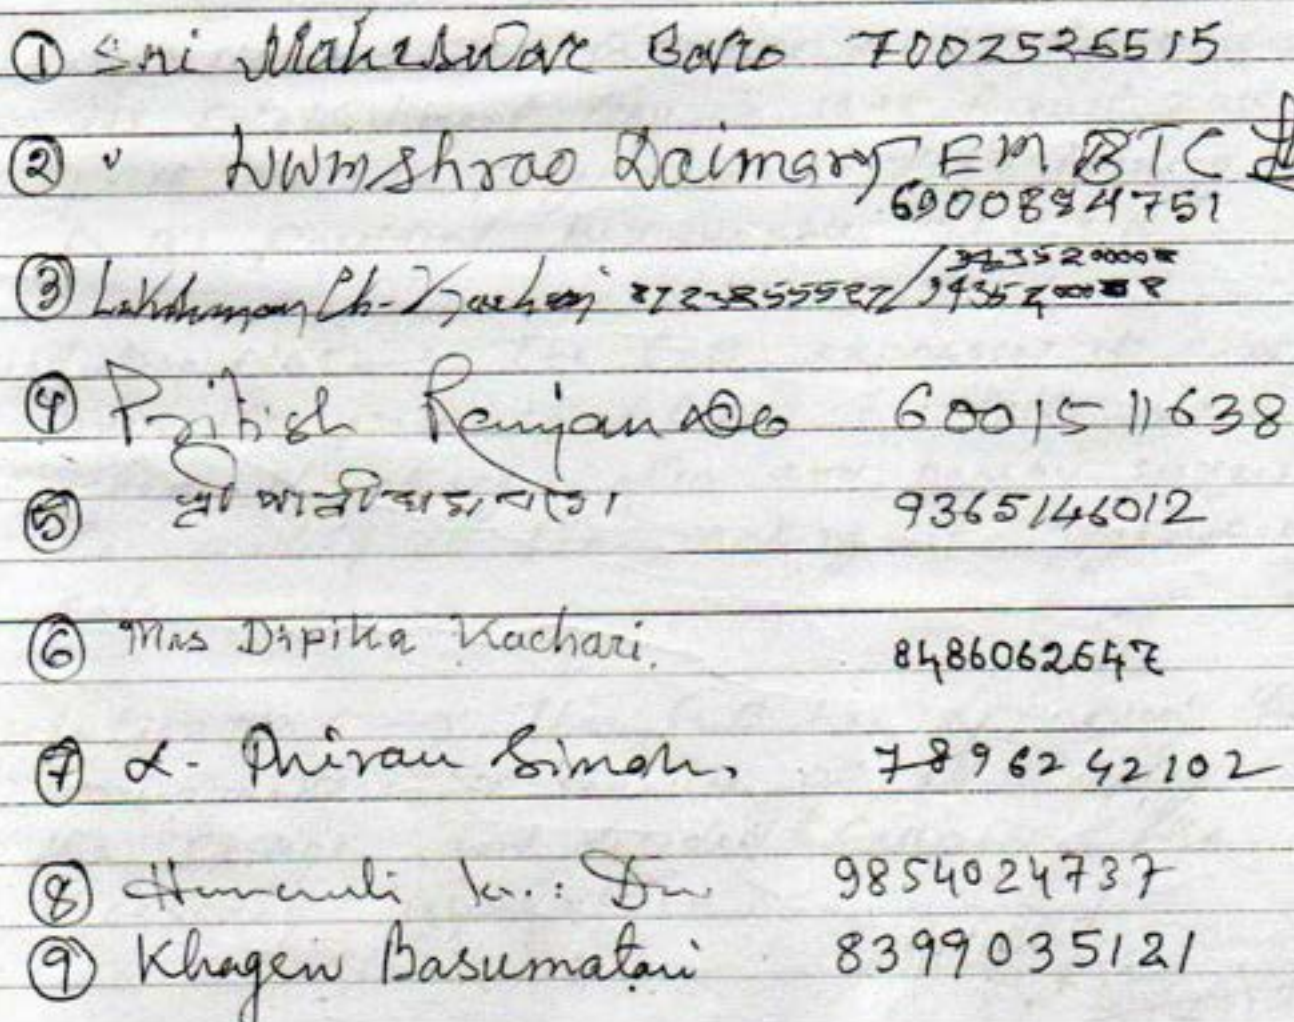 ① Sri Maheswar Boro 7002526515
② " Wwmshrao Daimary EM BTC
6900884751
③ Lakshman Ch- Kachari
④ Pritish Ranjan 6001511638
⑤ শ্রী 9365146012
⑥ Mrs Dipika Kachari. 8486062647
⑦ L. Dhiran Singh. 7896242102
⑧ 9854024737
⑨ Khagen Basumatari 8399035121